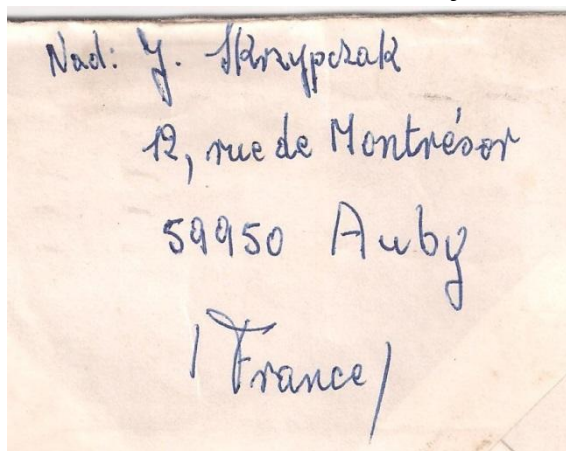 Nad: J. Skrzypczak
12, rue de Montrésor
59950 Auby
/France/